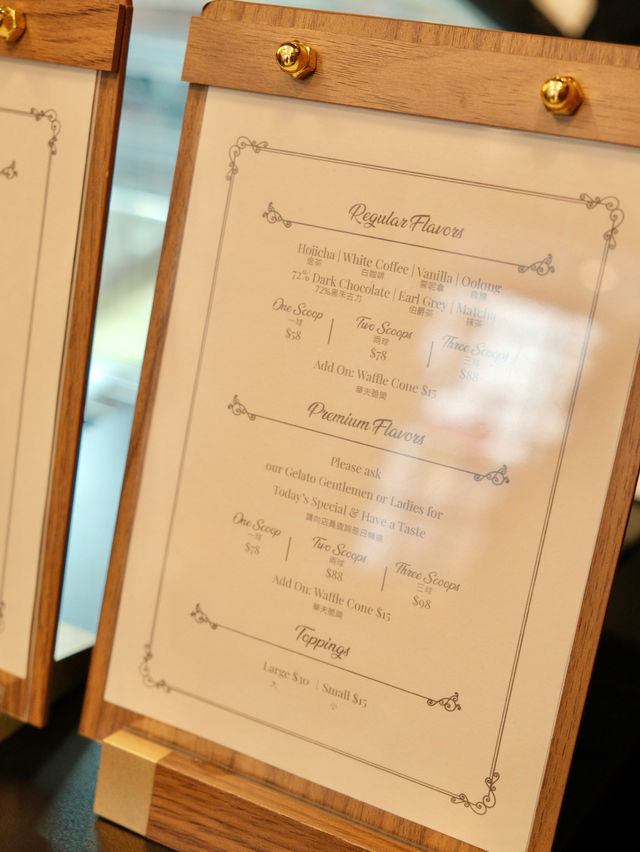 Regular Flavors
Hojicha | White Coffee | Vanilla | Oolong
焙茶 白咖啡 雲呢拿 烏龍
72% Dark Chocolate | Earl Grey | Matcha
72%黑朱古力 伯爵茶 抹茶
One Scoop | Two Scoops | Three Scoops
一球 兩球 三球
$58 $78 $88
Add On: Waffle Cone $15
華夫脆筒
Premium Flavors
Please ask
our Gelato Gentlemen or Ladies for
Today's Special & Have a Taste
請向店員查詢是日精選
One Scoop | Two Scoops | Three Scoops
一球 兩球 三球
$78 $88 $98
Add On: Waffle Cone $15
華夫脆筒
Toppings
Large $30 | Small $15
大 小